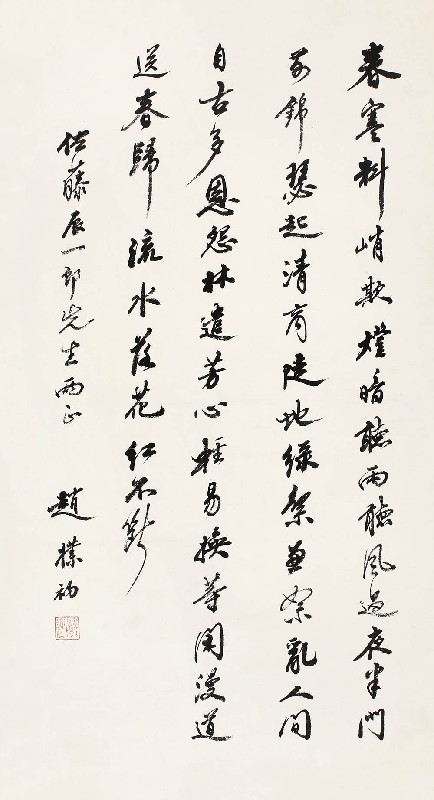 春寒料峭欺燈暗聽雨聽風過夜半門
前錦瑟起清商陡地綠繁兼絮亂人間
自古多恩怨休遣芳心輕易換等閑漫道
送春歸流水落花紅不斷
佐藤辰一郎先生兩正
趙樸初